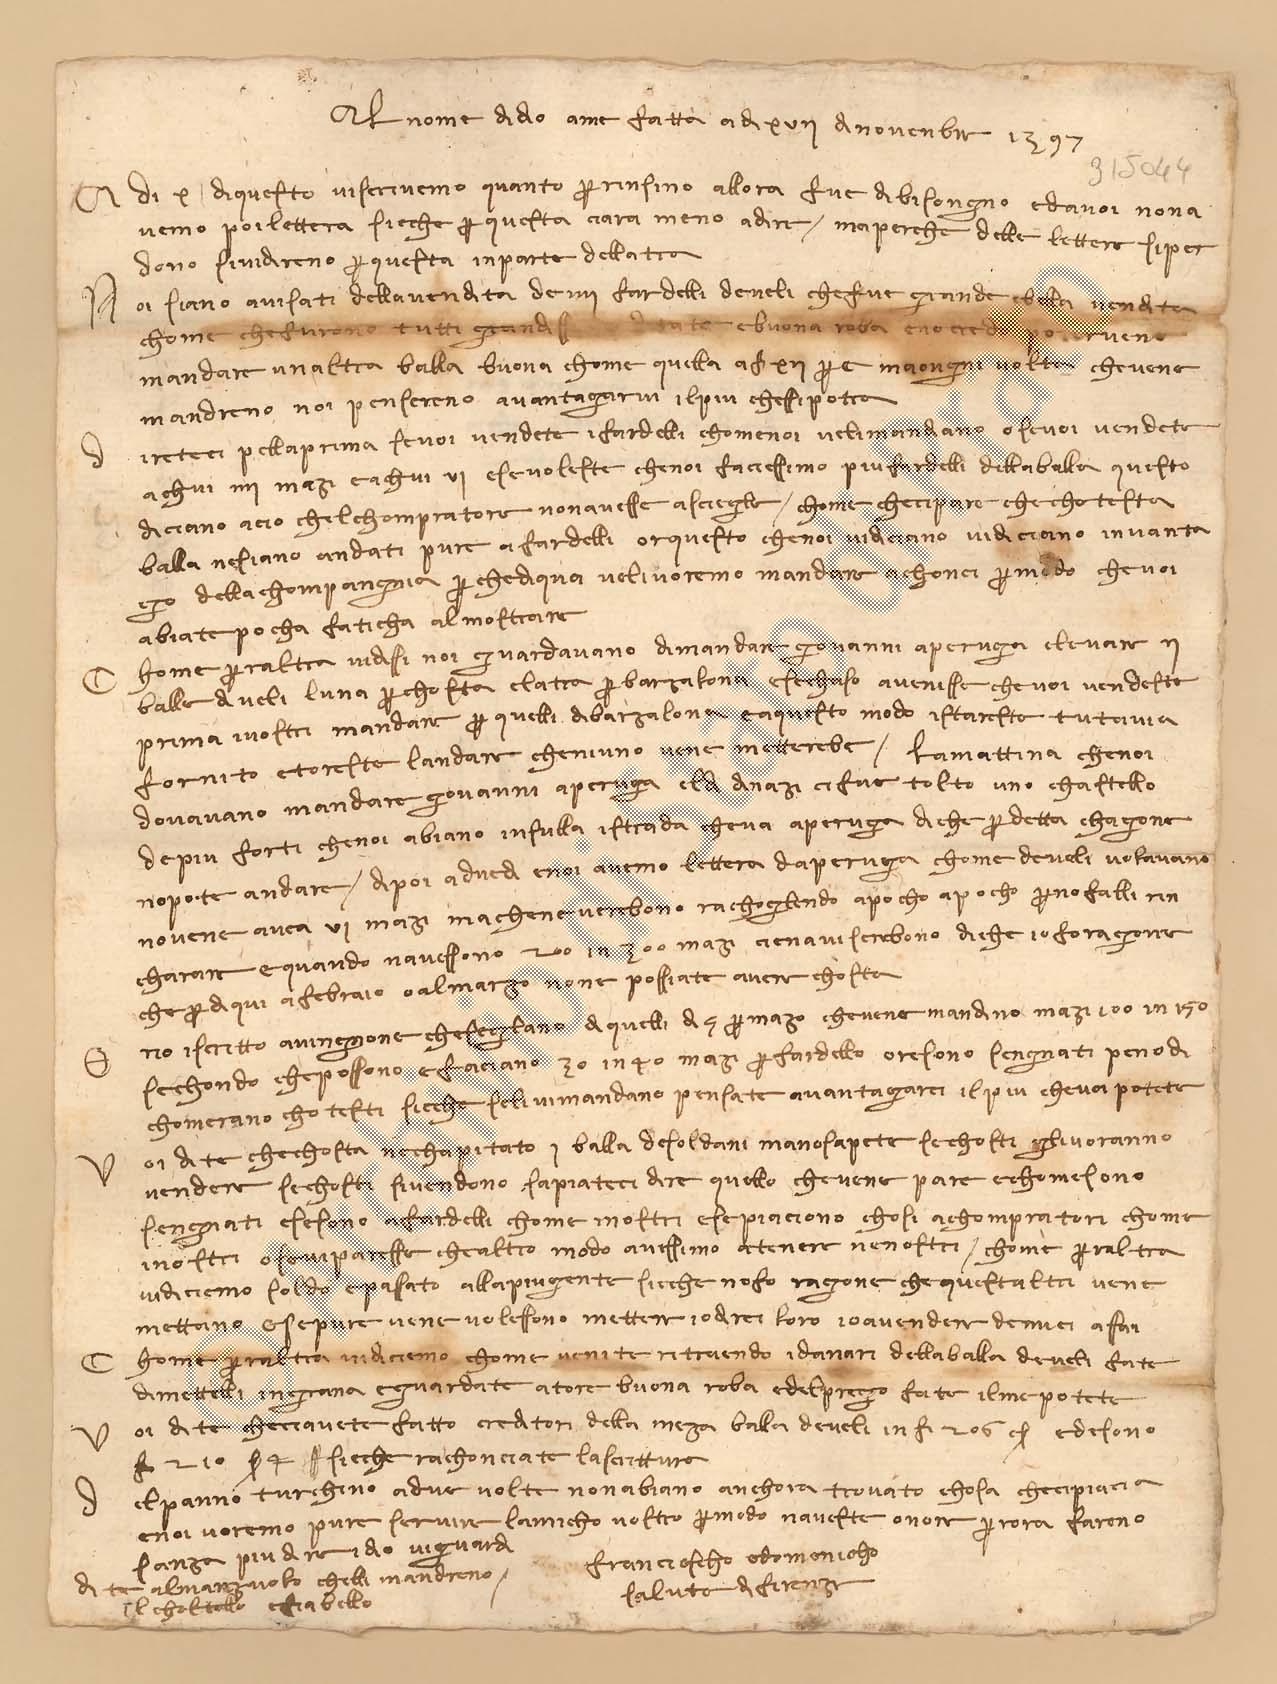 Al nome di dio ame fatta a di xvii di novenbre 1397
315044
A di x di questo vi scrivemo quanto per insino allora fue di bisongno e da voi nona
vemo poi lettera sicche per questa ciara meno a dire / ma perche delle lettere si per
dono si vi direno per questa in parte dellatra
N oi siano avisati della vendita de iiii fardelli de veli che fue grande e bella vendita
chome che furono tutti grandissi e buona roba e no credo potervene
mandare unaltra balla buona chome quella a f xii per c ma ongni volta che vene
mandreno noi pensereno avantagiarvi il piu chessi potra
D ireteci pella prima se voi vendete i fardelli chome noi veli mandiano o se voi vendete
a chui iiii mazi e a chui vi e se voleste che noi faciessimo piu fardelli della balla questo
diciano acio chel chompratore non avesse a sciegliere / chome che ci pare che chotesta
balla ne siano andati pure a fardelli or questo che noi vi diciano vi diciano in vanta
gio della chompangnia perche di qua veli voremo mandare achonci per modo che voi
abiate pocha faticha al mostrare
C home per altra vi dissi noi guardavano di mandare giovanni a perugia e levare ii
balle di veli luna per chosta e latra per barzalona e se chaso avenisse che voi vendeste
prima i vostri mandare per quelli di barzalona e a questo modo istareste tutavia
fornito e toreste landare che niuno vene metterebe / la mattina che noi
dovavano mandare giovanni a perugia el di dinazi ci fue tolto uno chastello
de piu forti che noi abiano in sulla istrada che va a perugia di che per detta chagione
no pote andare / di poi a due di e noi avemo lettera da perugia chome de veli volavano
no vene avea vi mazi ma che ne verebono rachogliendo a pocho a pocho per no falli rin
charare e quando navessono 200 in 300 mazi cienaviserebono di che io fo ragione
che per di qui a febraio o al marzo none possiate avere chosta
O rio iscritto a vingnone che sciegliano di quelli di 5 per mazo che vene mandino mazi 100 in 150
sechondo che possono e faciano 30 in 40 mazi per fardello or sono sengniati peno di
chomerano chotesti sicche se li vi mandano pensate avantagiarci il piu che voi potete
V oi dite che chosta ne chapitato i balla de soldani ma no sapete se chosti gli voranno
vendere se chosti si vendono sapiateci dire quello che vene pare e chome sono
sengniati e se sono a fardelli chome i nostri e se piaciono chosi a chompratori chome
i nostri o se vi paresse che altro modo avessimo a tenere ne nostri / chome per altra
vi diciemo soldo e passato alla piu gente sicche no fo ragione che questaltri vene
mettano e se pure vene volessono mettere io direi loro io a vendere de miei a fai
C home per altra vi diciemo chome venite ritraendo i danari della balla de veli fate
di mettelli in grana e guardate a tore buona roba e del pregio fate il me potete
V oi dite che ci avete fatto creditori della meza balla de veli in fi 206 e de sono
f 210 s 4 sicche rachonciate la scrittura
D el panno turchino a due volte non abiano anchora trovato chosa che ci piacia
e noi voremo pure servire lamicho vostro per modo naveste onore per ora fareno
sanza piu dire idio vi guardi
franciescho e domenicho
salute di firenze
dite al manzuolo chelli mandreno /
il choltello e fia bello